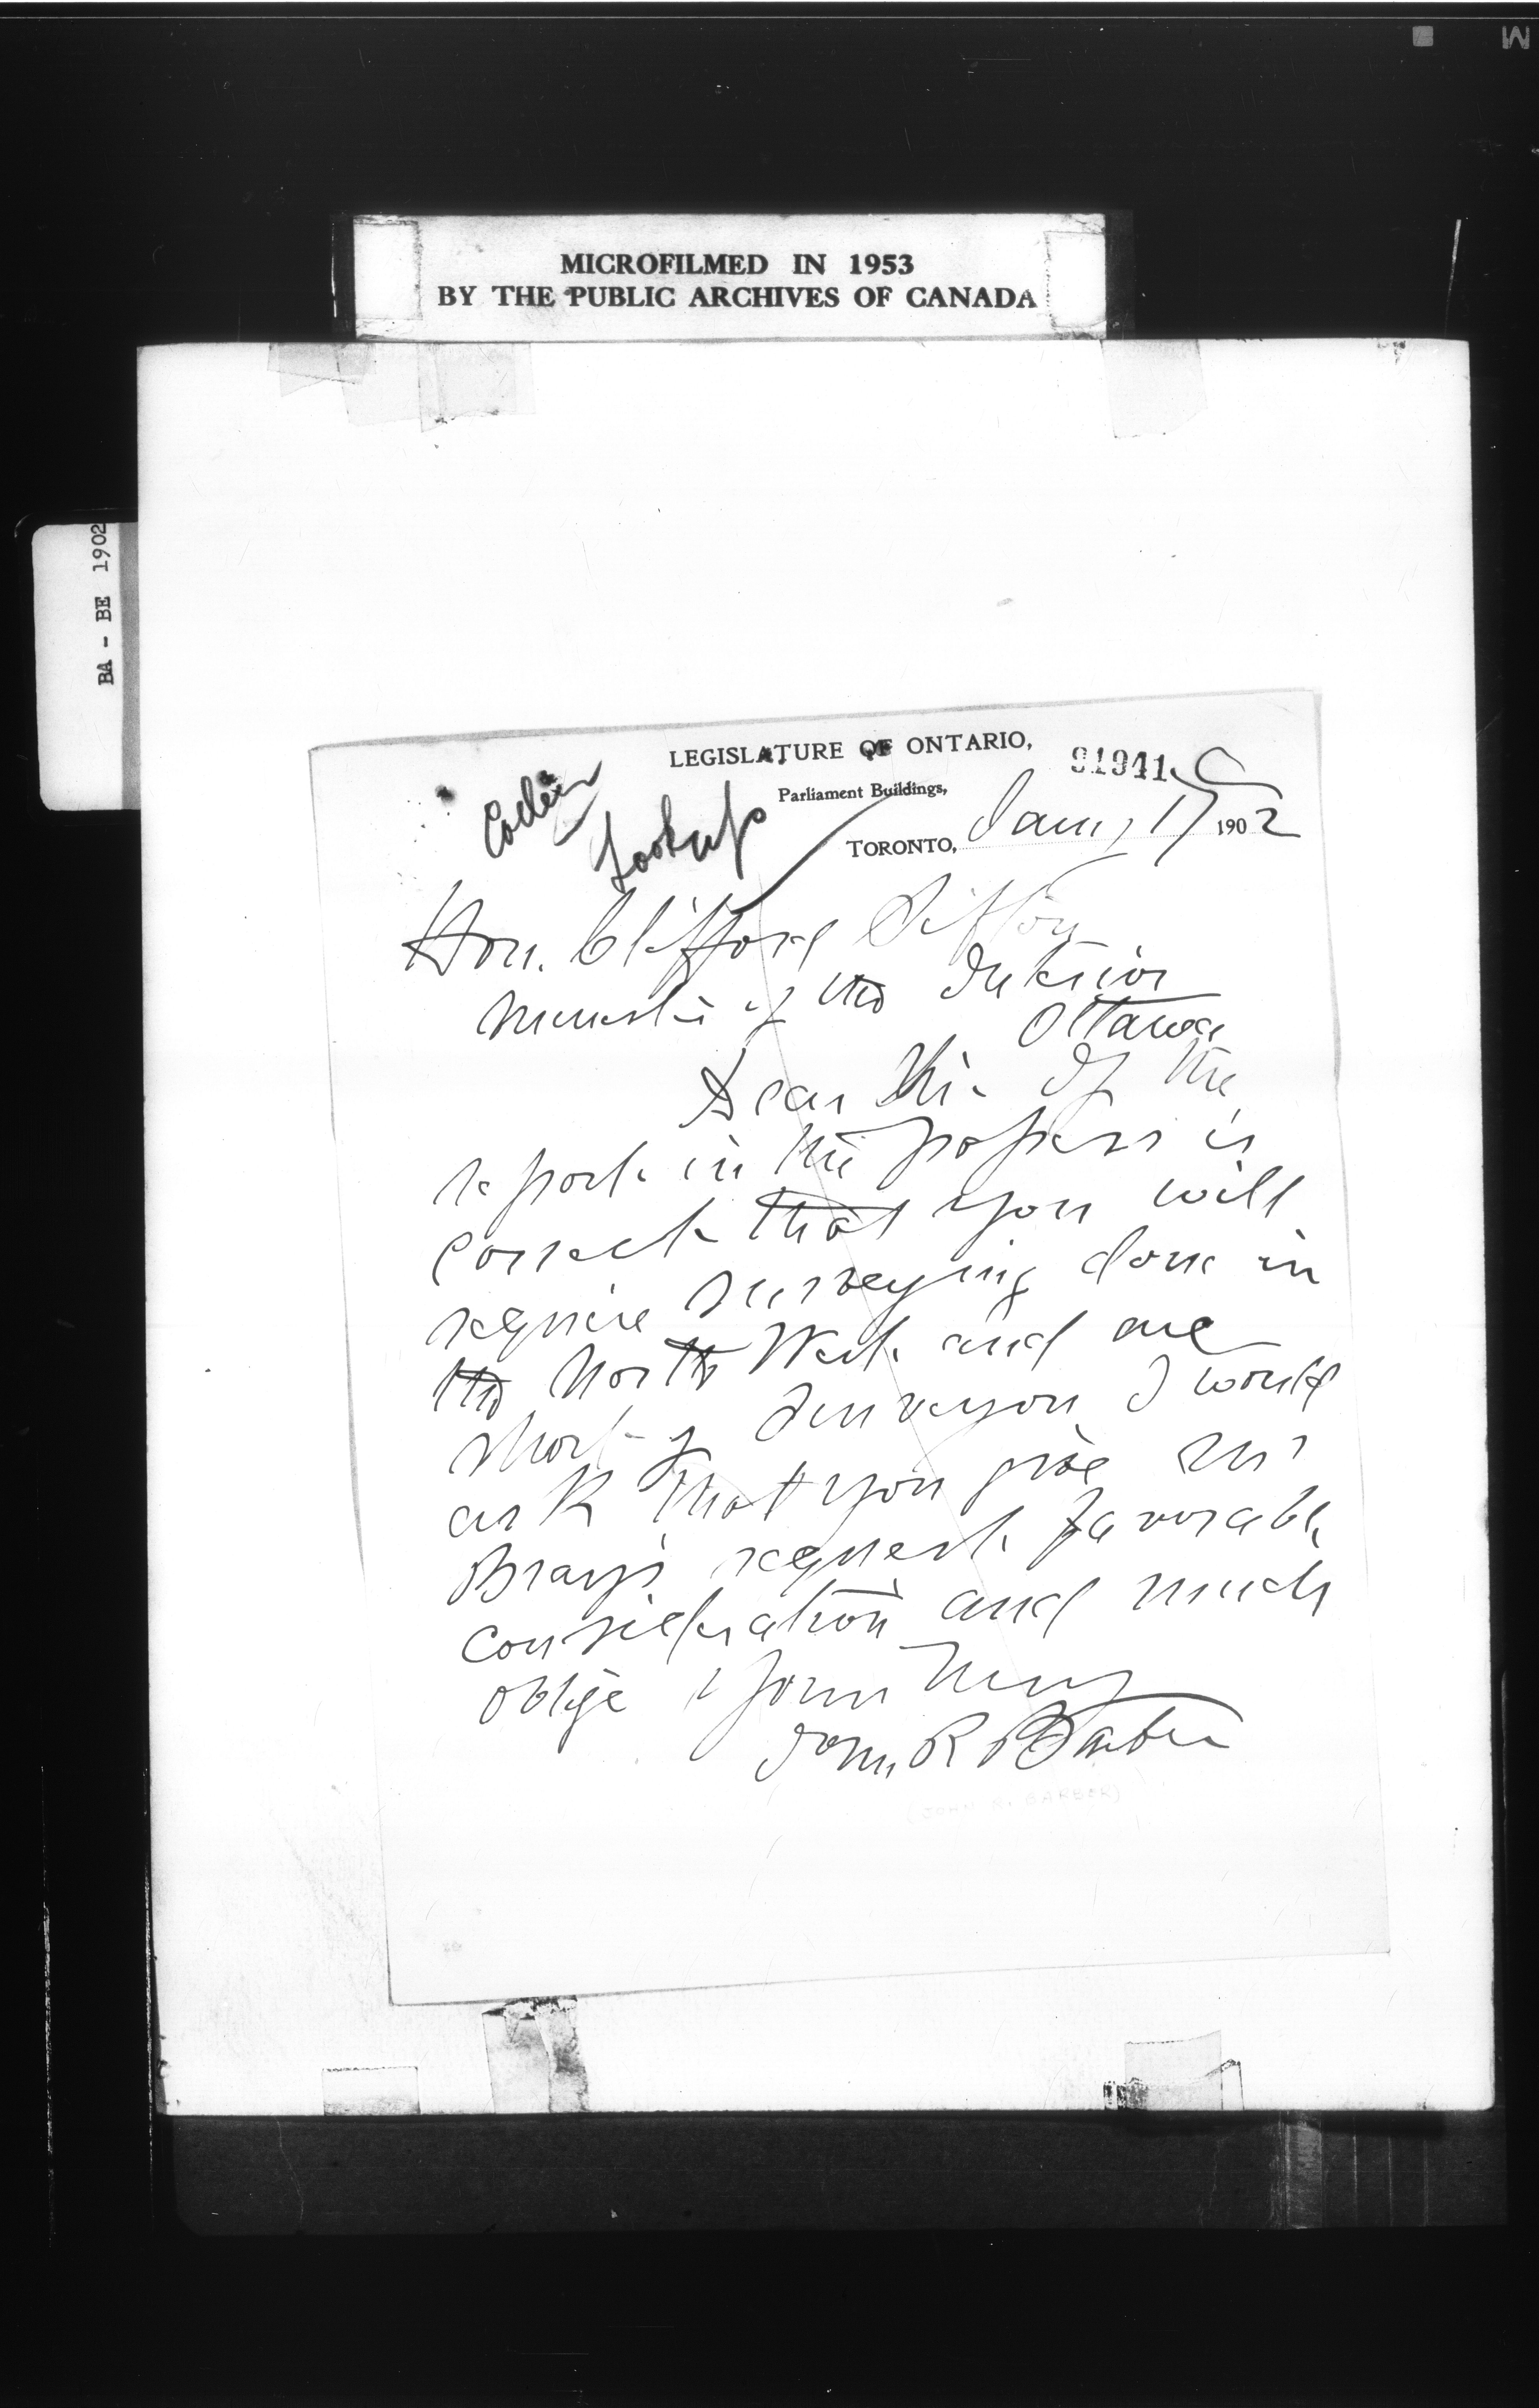 MICROFILMED IN 1953
BY THE PUBLIC ARCHIVES OF CANADA
BA - BE 1902
LEGISLATURE OF ONTARIO,
91941
Parliament Buildings,
Look up
TORONTO, Jany 17 1902
Hon. Clifford Sifton
Minister of the Interior
Ottawa
Dear Sir If the
report in the papers is
correct that you will
require surveying done in
the North West and are
short of surveyors I would
ask that you give Mr
Bray's request favorable
consideration and much
oblige Yours Truly
John R Barber
(JOHN R. BARBER)